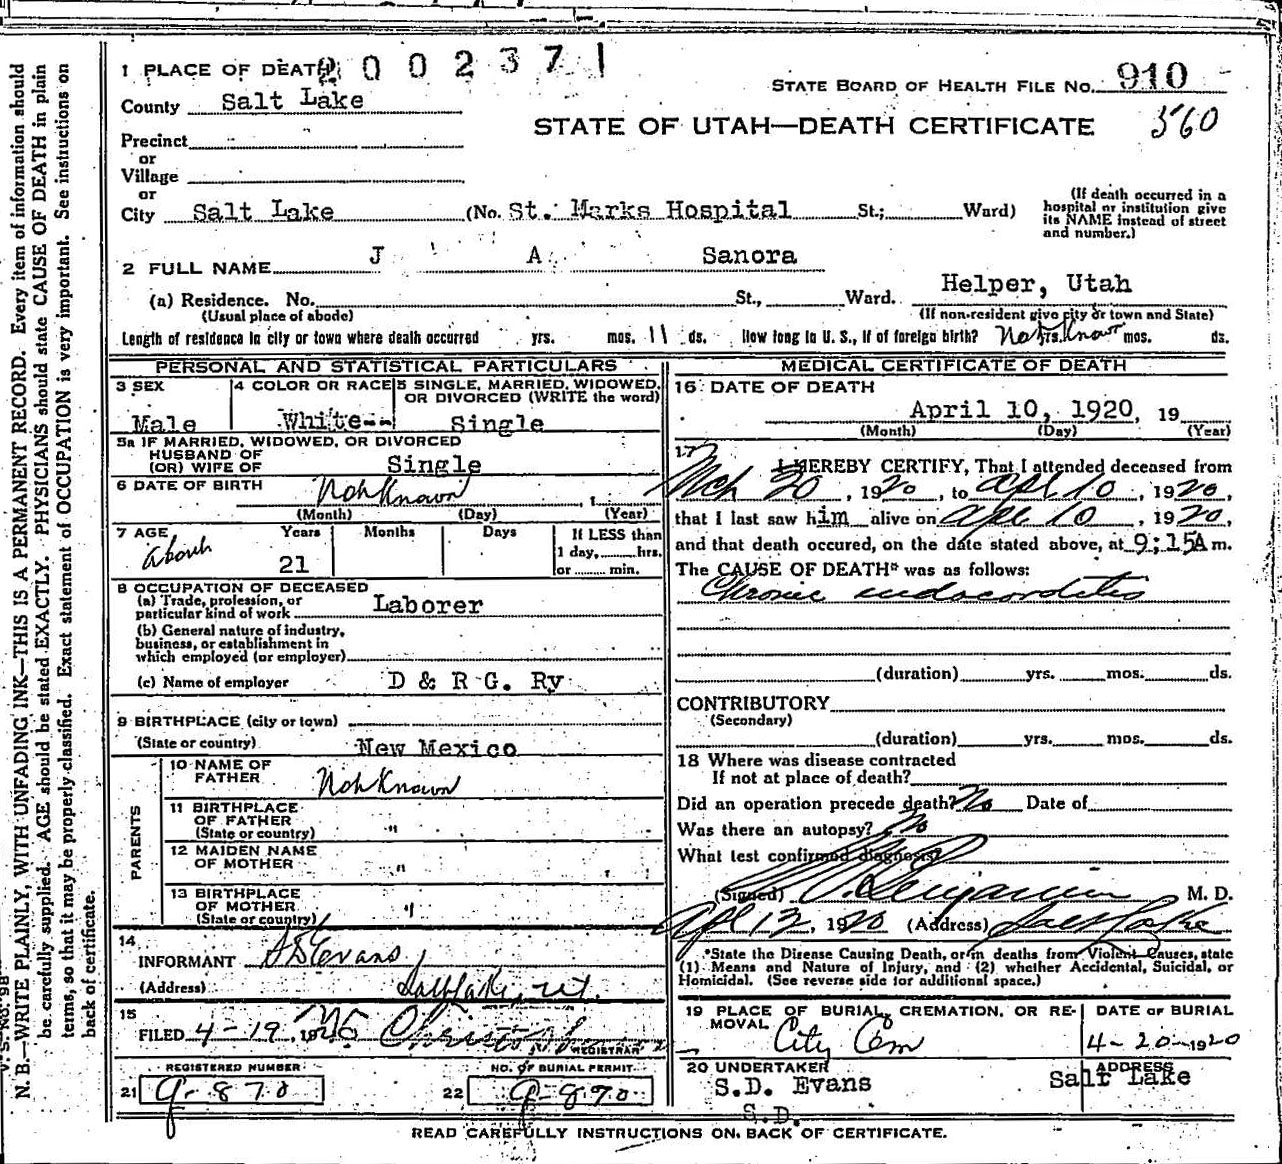 1 PLACE OF DEATH 2 0 0 2 3 7 1
STATE BOARD OF HEALTH FILE No. 910
County Salt Lake
STATE OF UTAH—DEATH CERTIFICATE 560
Precinct
or
Village
or
City Salt Lake (No. St. Marks Hospital St.; Ward)
(If death occurred in a hospital or institution give its NAME instead of street and number.)
2 FULL NAME J A. Sanora
(a) Residence. No. St., Ward. Helper, Utah
(Usual place of abode) (If non-resident give city or town and State)
Length of residence in city or town where death occurred yrs. mos. 11 ds. How long in U. S., if of foreign birth? Not Know yrs. mos. ds.
PERSONAL AND STATISTICAL PARTICULARS
3 SEX Male
4 COLOR OR RACE White--
5 SINGLE, MARRIED, WIDOWED, OR DIVORCED (WRITE the word) Single
5a IF MARRIED, WIDOWED, OR DIVORCED
HUSBAND OF
(OR) WIFE OF Single
6 DATE OF BIRTH Not Known , 1
(Month) (Day) (Year)
7 AGE Years Months Days If LESS than
about 21 1 day, hrs.
or min.
8 OCCUPATION OF DECEASED
(a) Trade, profession, or
particular kind of work Laborer
(b) General nature of industry,
business, or establishment in
which employed (or employer)
(c) Name of employer D & R G. Ry
9 BIRTHPLACE (city or town)
(State or country) New Mexico
PARENTS
10 NAME OF
FATHER Not Known
11 BIRTHPLACE
OF FATHER
(State or country) "
12 MAIDEN NAME
OF MOTHER "
13 BIRTHPLACE
OF MOTHER
(State or country) "
14
INFORMANT S D Evans
(Address) Salt Lake, Ut.
15
FILED 4-19, 1920
REGISTRAR
REGISTERED NUMBER NO. OF BURIAL PERMIT
21 G-870 22 G-870
MEDICAL CERTIFICATE OF DEATH
16 DATE OF DEATH
April 10, 1920, 19
(Month) (Day) (Year)
17
I HEREBY CERTIFY, That I attended deceased from
Mch 30, 1920, to Apl 10, 1920,
that I last saw him alive on Apl 10, 1920,
and that death occured, on the date stated above, at 9;15A m.
The CAUSE OF DEATH* was as follows:
Chronic endocarditis
(duration) yrs. mos. ds.
CONTRIBUTORY
(Secondary)
(duration) yrs. mos. ds.
18 Where was disease contracted
If not at place of death?
Did an operation precede death? No Date of
Was there an autopsy? No
What test confirmed diagnosis?
(Signed) Benjamin M. D.
Apl 12, 1920 (Address) Salt Lake
*State the Disease Causing Death, or in deaths from Violent Causes, state
(1) Means and Nature of Injury, and (2) whether Accidental, Suicidal, or
Homicidal. (See reverse side for additional space.)
19 PLACE OF BURIAL, CREMATION, OR RE-
MOVAL City Cem
DATE OF BURIAL
4-20-1920
20 UNDERTAKER ADDRESS
S.D. Evans Salt Lake
S.D.
READ CAREFULLY INSTRUCTIONS ON BACK OF CERTIFICATE.
V. S. No. 98
N. B.—WRITE PLAINLY, WITH UNFADING INK—THIS IS A PERMANENT RECORD. Every item of information should
be carefully supplied. AGE should be stated EXACTLY. PHYSICIANS should state CAUSE OF DEATH in plain
terms, so that it may be properly classified. Exact statement of OCCUPATION is very important. See instructions on
back of certificate.